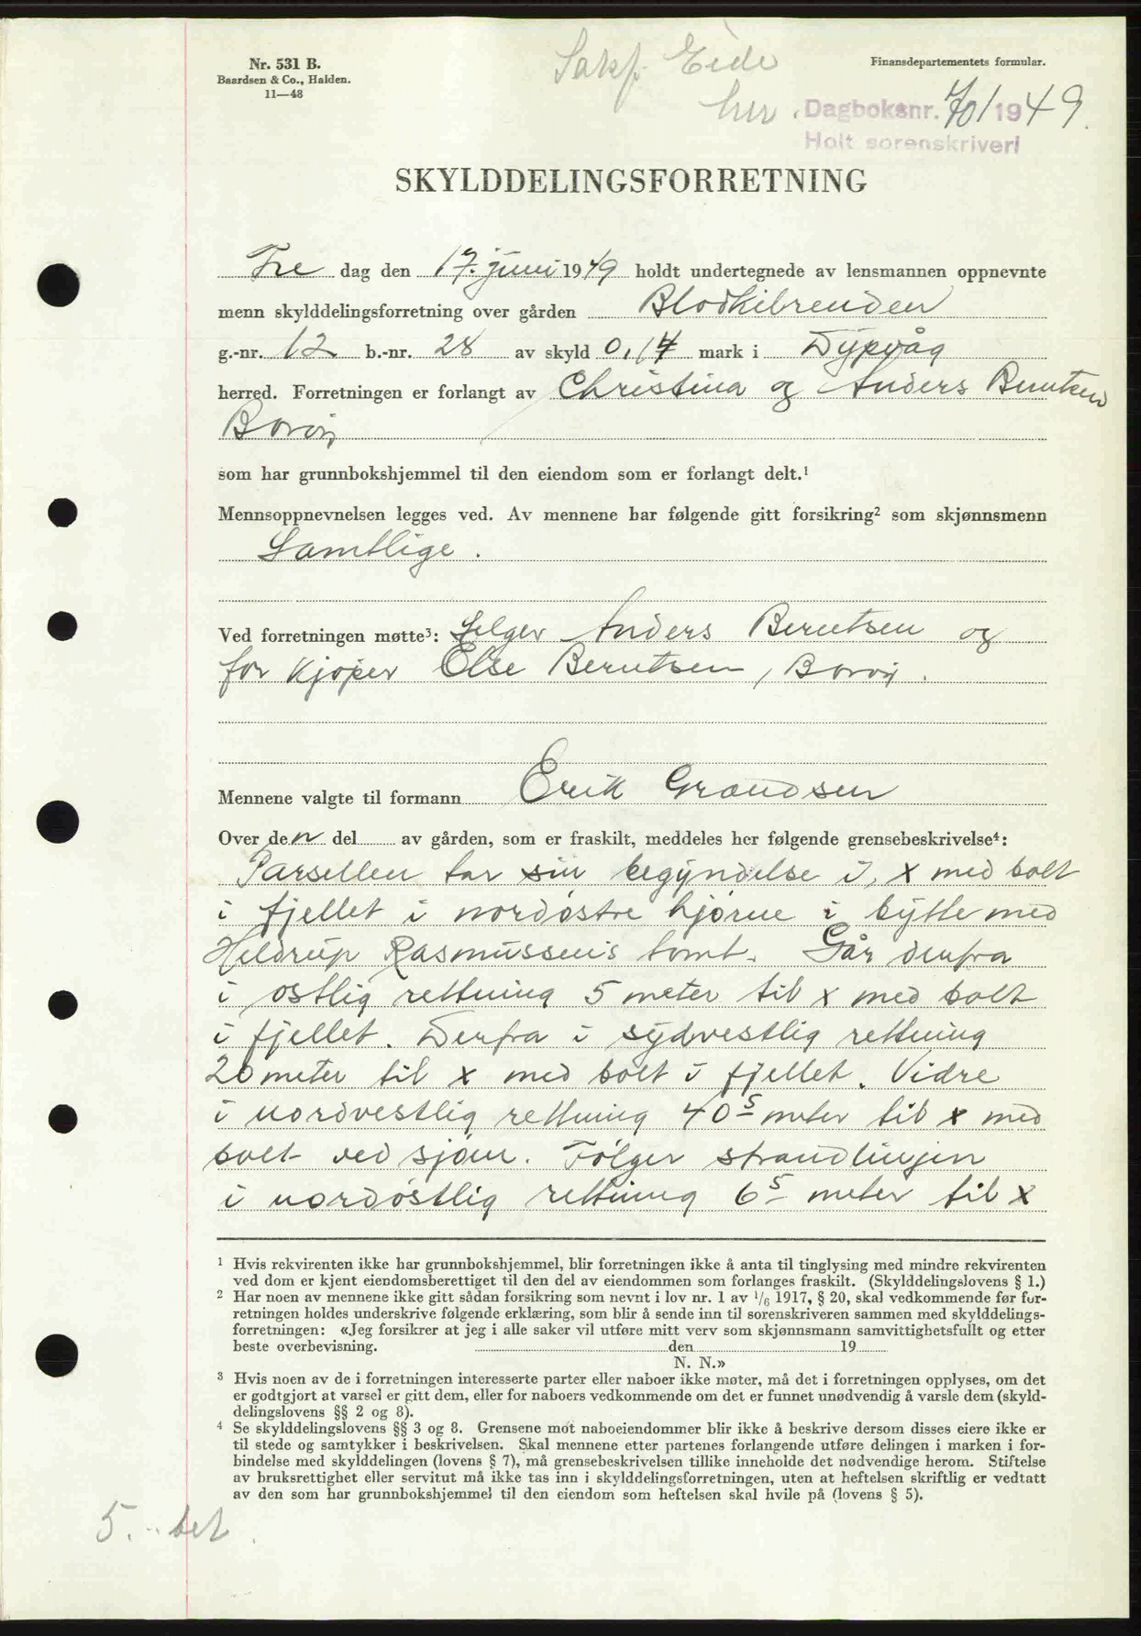 Nr. 531 B.
Baardsen & Co., Halden.
11—48
Sakf. Eide
her.
Finansdepartementets formular.
Dagboksnr. 701 1949.
Holt sorenskriveri
SKYLDDELINGSFORRETNING
Fre dag den 17. juni 1949 holdt undertegnede av lensmannen oppnevnte
menn skylddelingsforretning over gården Blodkibrenden
g.-nr. 12 b.-nr. 28 av skyld 0,14 mark i Dypvåg
herred. Forretningen er forlangt av Christina og Anders Berntsen
Borøy
som har grunnbokshjemmel til den eiendom som er forlangt delt.¹
Mennsoppnevnelsen legges ved. Av mennene har følgende gitt forsikring² som skjønnsmenn
Samtlige.
Ved forretningen møtte³: Selger Anders Berntsen og
for kjøper Else Berntsen, Borøy.
Mennene valgte til formann Erik Grandsen
Over den del av gården, som er fraskilt, meddeles her følgende grensebeskrivelse⁴:
Parsellen tar sin begyndelse i, x med bolt
i fjellet i nordøstre hjørne i bytte med
Heldrup Rasmussens tomt. Går derfra
i østlig rettning 5 meter til x med bolt
i fjellet. Derfra i sydvestlig rettning
20 meter til x med bolt i fjellet. Vidre
i nordvestlig rettning 40⁵ meter til x med
bolt ved sjøen. Følger strandlinjen
i nordøstlig rettning 6⁵ meter til x
¹ Hvis rekvirenten ikke har grunnbokshjemmel, blir forretningen ikke å anta til tinglysing med mindre rekvirenten
ved dom er kjent eiendomsberettiget til den del av eiendommen som forlanges fraskilt. (Skylddelingslovens § 1.)
² Har noen av mennene ikke gitt sådan forsikring som nevnt i lov nr. 1 av 1/6 1917, § 20, skal vedkommende før for-
retningen holdes underskrive følgende erklæring, som blir å sende inn til sorenskriveren sammen med skylddelings-
forretningen: «Jeg forsikrer at jeg i alle saker vil utføre mitt verv som skjønnsmann samvittighetsfullt og etter
beste overbevisning. den 19
N. N.»
³ Hvis noen av de i forretningen interesserte parter eller naboer ikke møter, må det i forretningen opplyses, om det
er godtgjort at varsel er gitt dem, eller for naboers vedkommende om det er funnet unødvendig å varsle dem (skyld-
delingslovens §§ 2 og 8).
⁴ Se skylddelingslovens §§ 3 og 8. Grensene mot naboeiendommer blir ikke å beskrive dersom disses eiere ikke er
til stede og samtykker i beskrivelsen. Skal mennene etter partenes forlangende utføre delingen i marken i for-
bindelse med skylddelingen (lovens § 7), må grensebeskrivelsen tillike inneholde det nødvendige herom. Stiftelse
av bruksrettighet eller servitut må ikke tas inn i skylddelingsforretningen, uten at heftelsen skriftlig er vedtatt
av den som har grunnbokshjemmel til den eiendom som heftelsen skal hvile på (lovens § 5).
5. - bet